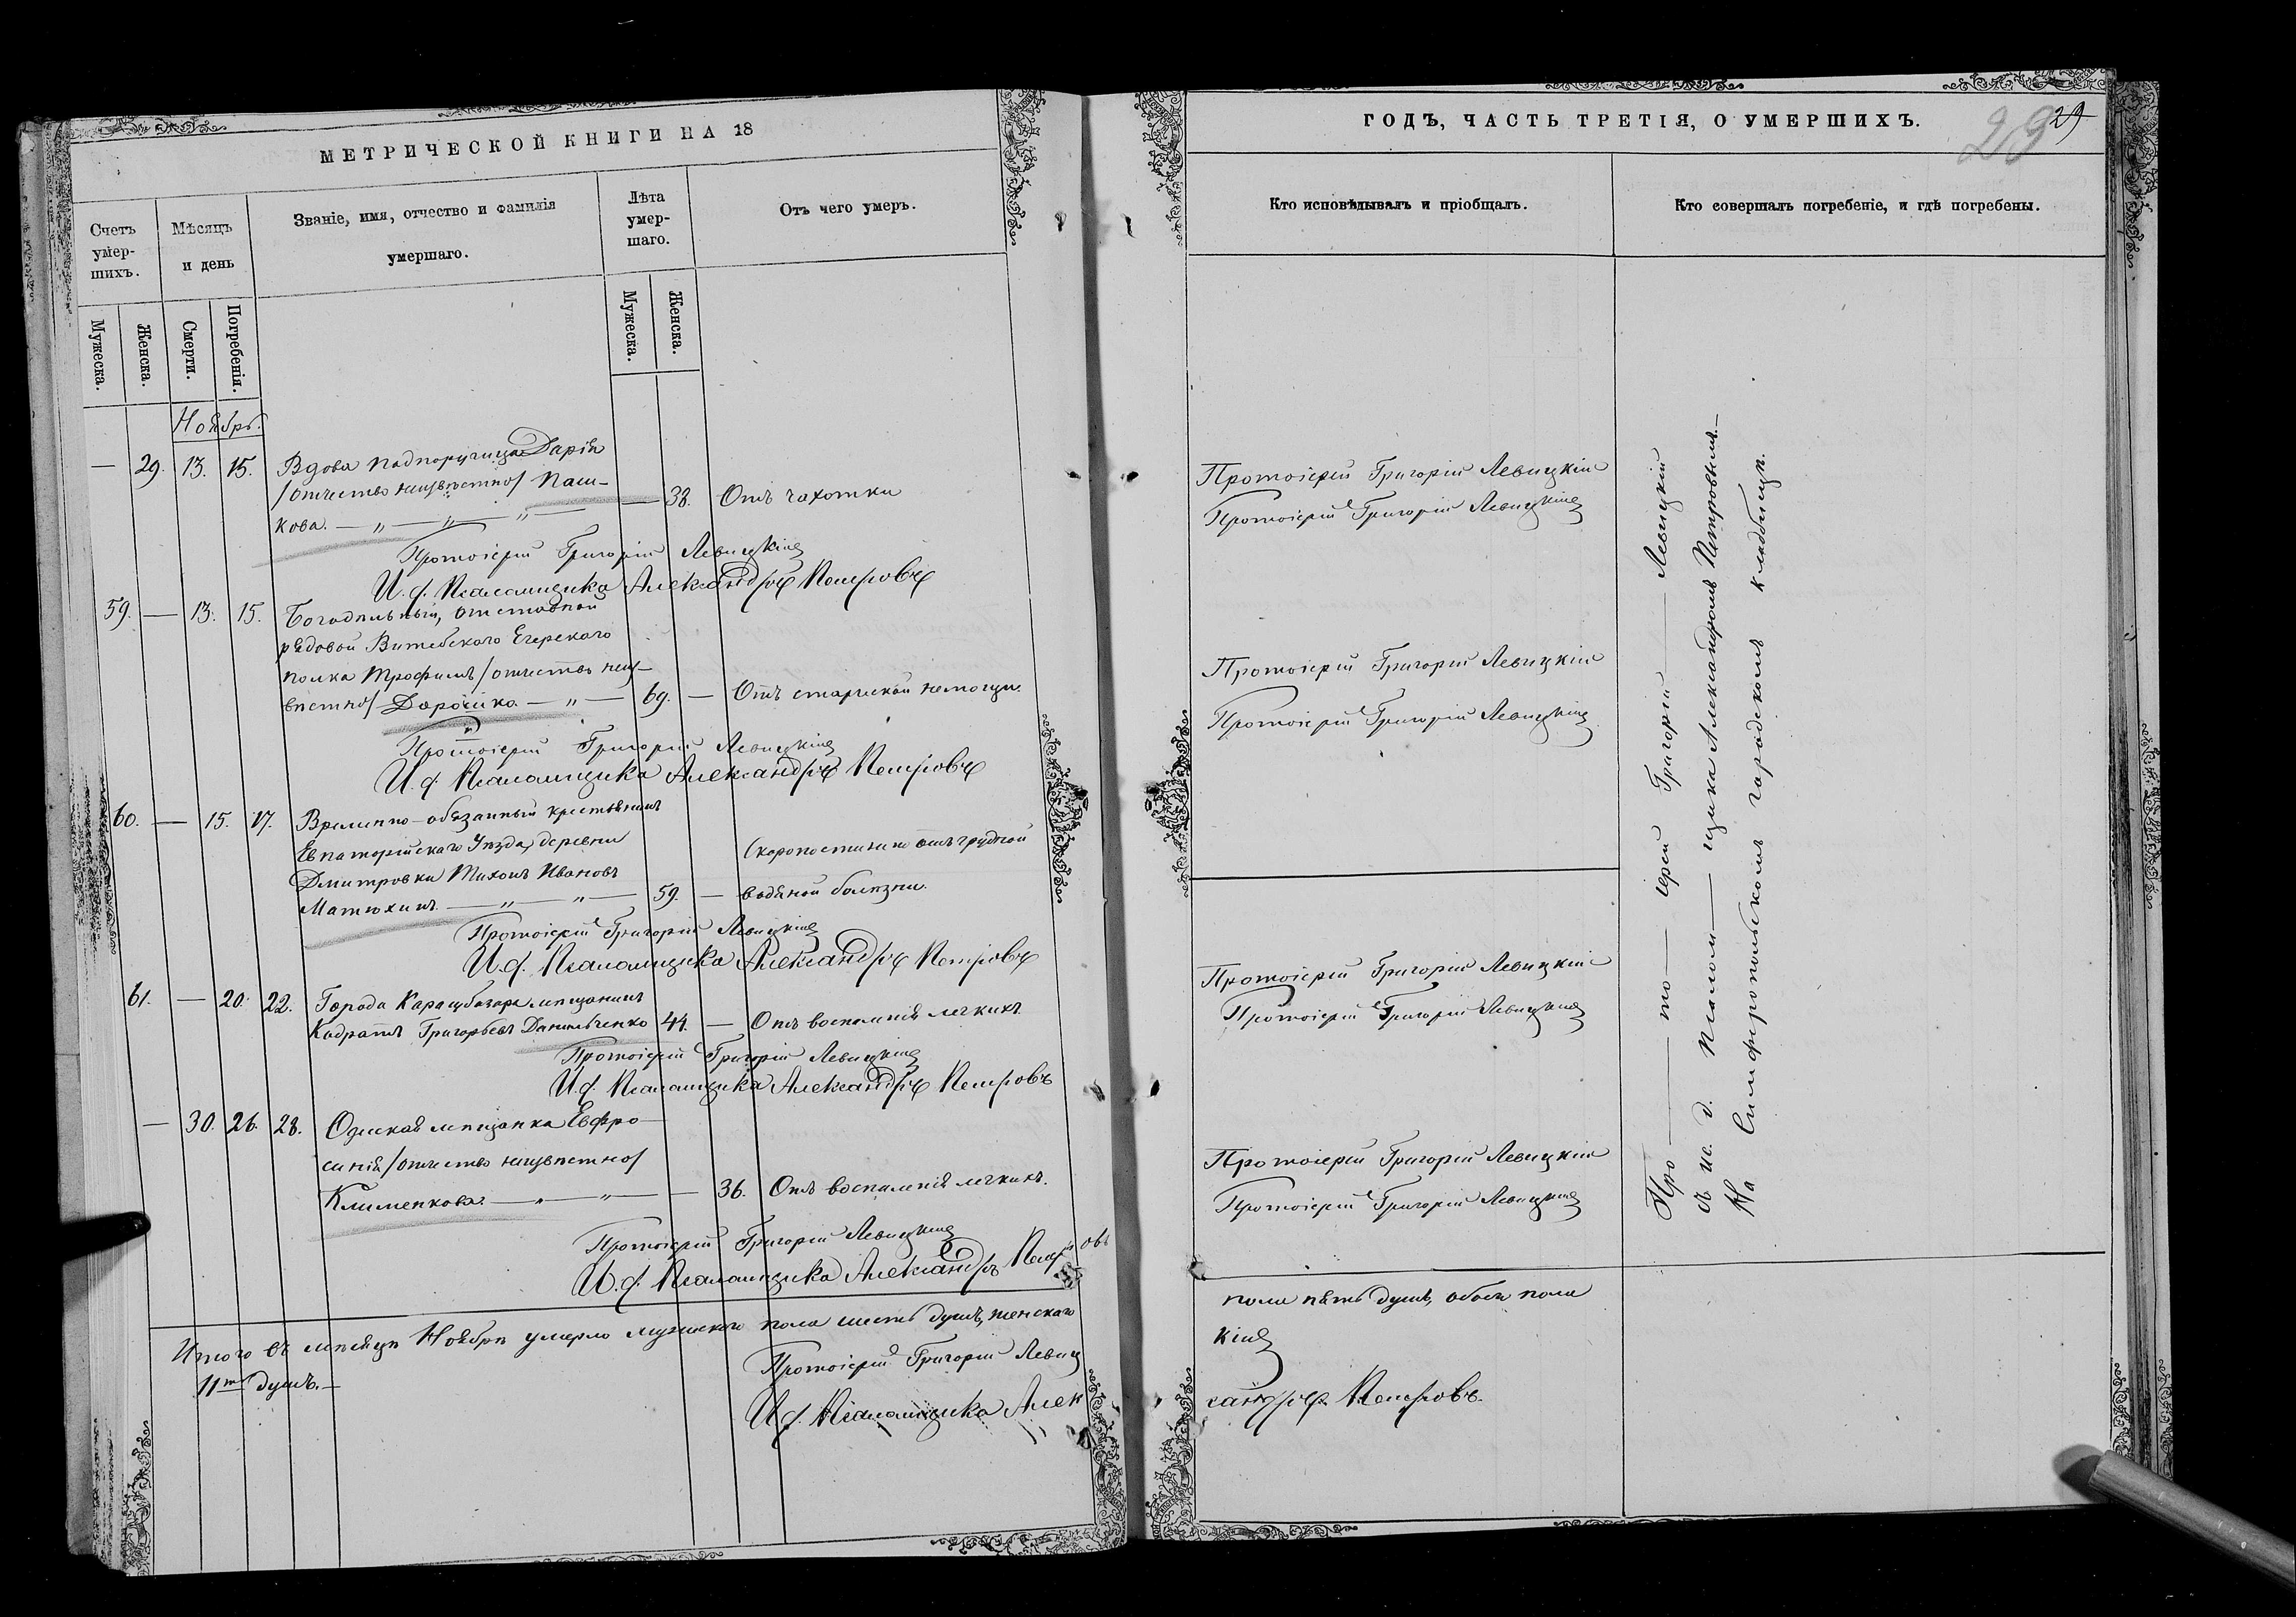 МЕТРИЧЕСКОЙ КНИГИ НА 18
Счетъ умер-шихъ.
Мѣсяцъ и день
Званіе, имя, отчество и фамилія
умершаго.
Лѣта умер-шаго.
Отъ чего умеръ.
Мужеска.
Женска.
Смерти.
Погребенія.
Мужеска.
Женска.
Ноябрь.
— 29. 13. 15. Вдова подпоручица Дарія
/отчество неизвѣстно/ Паш-
кова. — „ — „ — „ — — 38. Отъ чахотки
Протоіерей Григорій Левицкій
И. д. Псаломщика Александръ Петровъ
59. — 13. 15. Богадѣльный, отставной
рядовой Витебскаго Егерскаго
полка Трофимъ /отчество неиз-
вѣстно/ Дорошко — „ — 69. — Отъ старческой немощи.
Протоіерей Григорій Левицкій
И. д. Псаломщика Александръ Петровъ
60. — 15. 17. Временно-обязанный крестьянинъ
Евпаторійскаго Уѣзда, деревни
Дмитровки Тихонъ Ивановъ
Скоропостижно отъ грудной
Матюхинъ. — „ — „ — 59. — водяной болѣзни.
Протоіерей Григорій Левицкій
И. д. Псаломщика Александръ Петровъ
61. — 20. 22. Города Карасубазара мѣщанинъ
Кодратъ Григорьевъ Данильченко 44. — Отъ воспаленія легкихъ
Протоіерей Григорій Левицкій
И. д. Псаломщика Александръ Петровъ
— 30. 26. 28. Одеская мѣщанка Евфро-
синія /отчество неизвѣстно/
Клименкова. — „ — „ — — 36. Отъ воспаленія легкихъ.
Протоіерей Григорій Левицкій
И. д. Псаломщика Александръ Петровъ
Итого въ мѣсяцѣ Ноябрѣ умерло мужескаго пола шесть душъ, женскаго
11ть душъ. —
Протоіерей Григорій Левиц
И. д. Псаломщика Алек
ГОДЪ, ЧАСТЬ ТРЕТІЯ, О УМЕРШИХЪ.
29 29
Кто исповѣдывалъ и пріобщалъ.
Кто совершалъ погребеніе, и гдѣ погребены.
Протоіерей Григорій Левицкій
Протоіерей Григорій Левицкій
Протоіерей Григорій Левицкій
Протоіерей Григорій Левицкій
Протоіерей Григорій Левицкій
Протоіерей Григорій Левицкій
Протоіерей Григорій Левицкій
Протоіерей Григорій Левицкій
Про — то — іерей Григорій — Левицкій
съ ис. д. Псалом — щика Александромъ Петровымъ. —
На Симферопольскомъ городскомъ кладбищѣ.
пола пять душъ, обоего пола
кій
сандръ Петровъ.